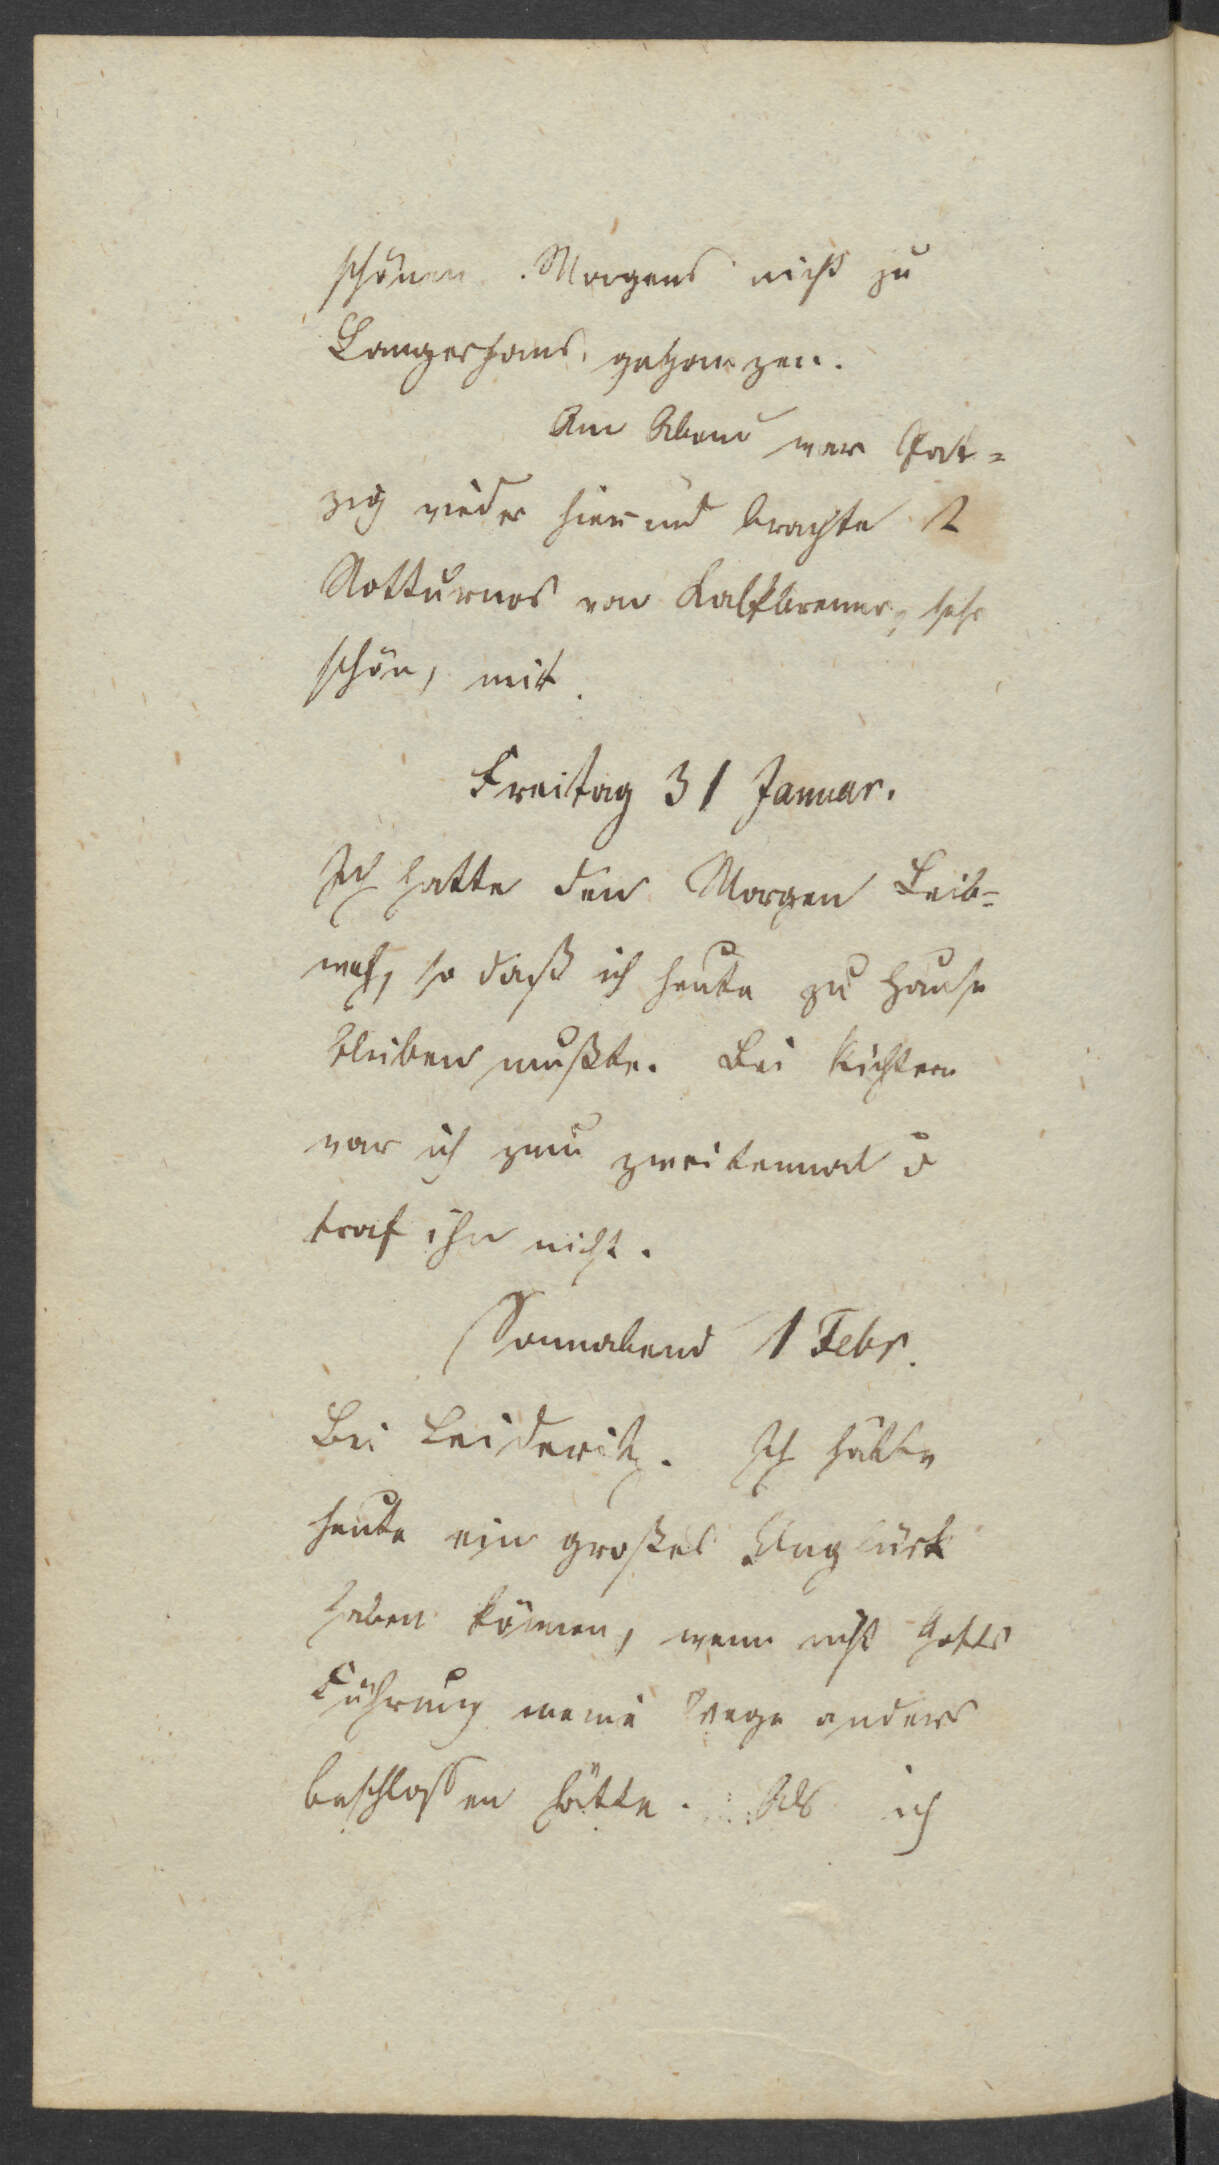 schönen Morgens nicht zu
Langerhans gegangen.
Am Abend war Pat=
zig wieder hier und brachte 2
Notturnos von Kalkbrenner, sehr
schön, mit.
Freitag 31 Januar.
Ich hatte den Morgen Leib=
weh, so daß ich heute zu Hause
bleiben mußte. Bei Richtern
war ich zum zweitenmal u
traf ihn nicht.
Sonnabend 1 Febr.
Bei Leideritz. Ich hätte
heute ein großes Unglück
haben können, wenn nicht Gottes
Führung meine Wege anders
beschlossen hätte. Als ich